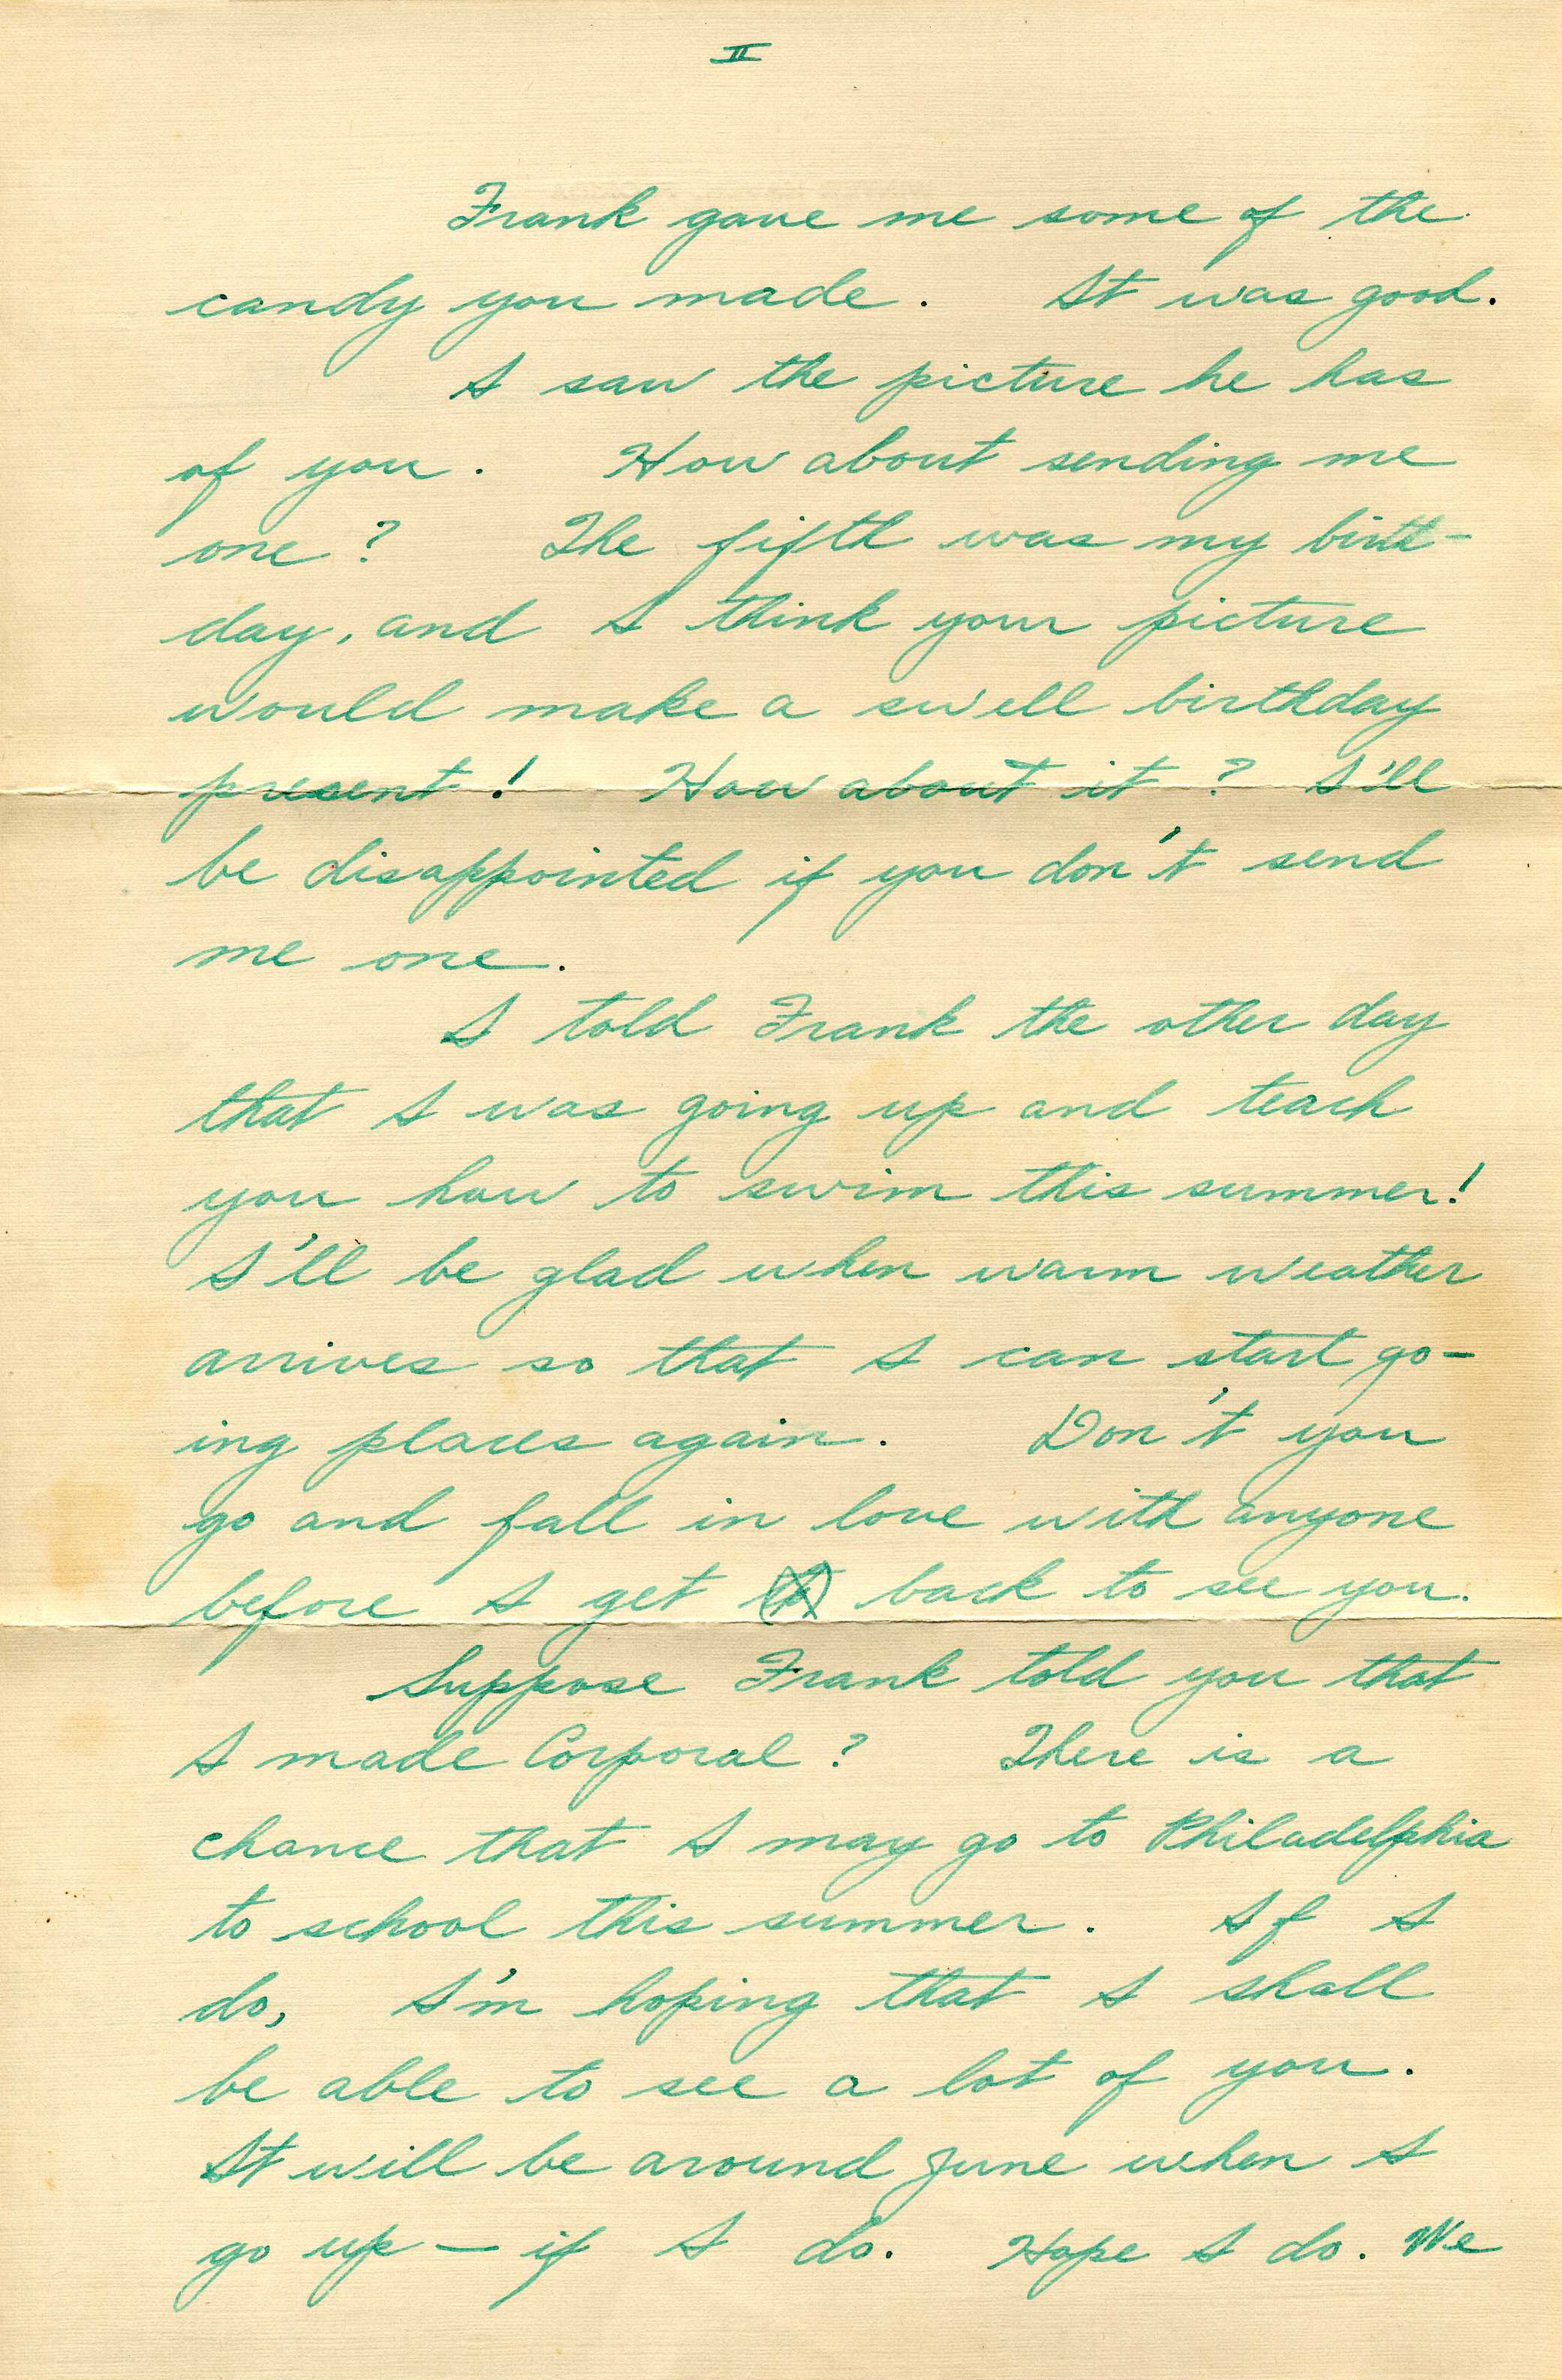 II
Frank gave me some of the
candy you made. It was good.
I saw the picture he has
of you. How about sending me
one? The fifth was my birth-
day, and I think your picture
would make a swell birthday
present! How about it? I'll
be disappointed if you don't send
me one.
I told Frank the other day
that I was going up and teach
you how to swim this summer!
I'll be glad when warm weather
arrives so that I can start go-
ing places again. Don't you
go and fall in love with anyone
before I get back to see you.
Suppose Frank told you that
I made Corporal? There is a
chance that I may go to Philadelphia
to school this summer. If I
do, I'm hoping that I shall
be able to see a lot of you.
It will be around June when I
go up — if I do. Hope I do. We